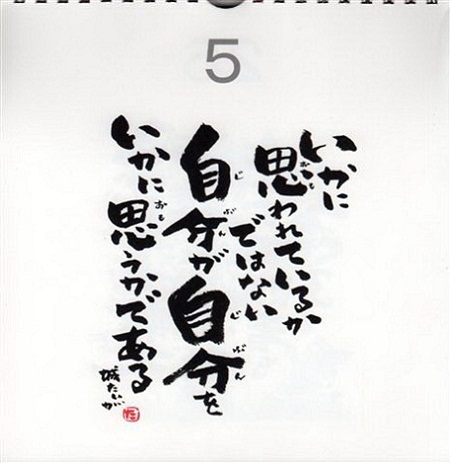 5
いかに
思われているか
ではない
自分が自分を
いかに思うかである
城たいが